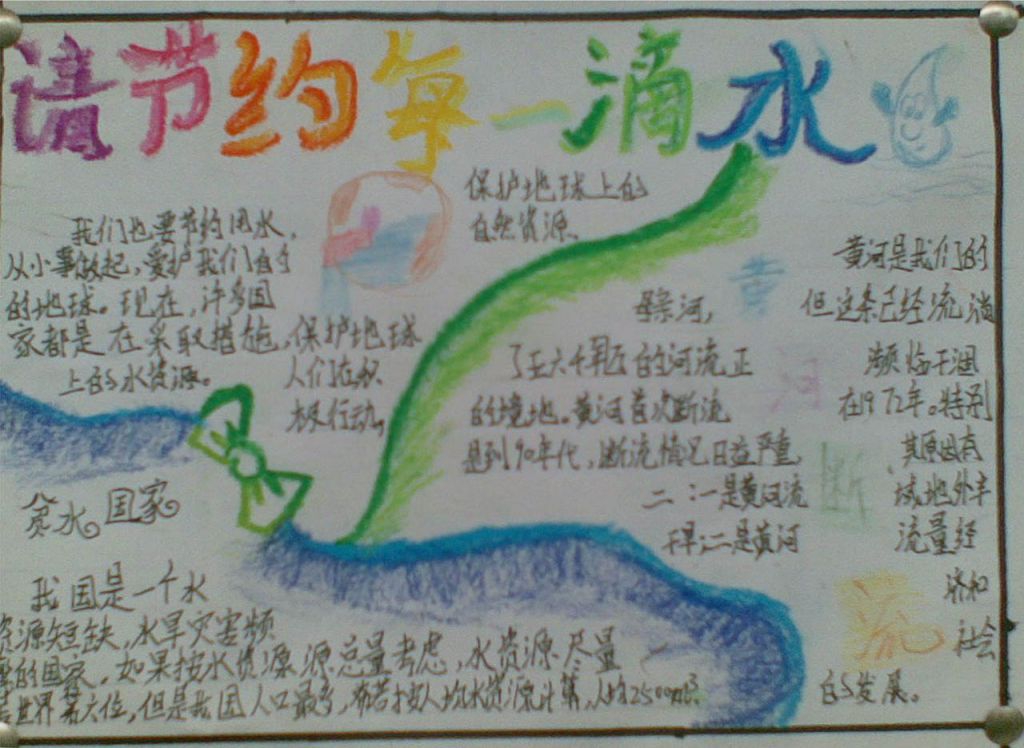 请节约每一滴水
我们也要节约用水，
从小事做起，爱护我们自的
的地球。现在，许多国
家都是在采取措施，保护地球
上的水资源。
人们在积
极行动，
保护地球上的
自然资源，
黄河断流
黄河是我们的
母亲河，但这条已经流淌
了五六千年的河流正濒临干涸
的境地。黄河首次断流在1972年。特别
是到90年代，断流情况日益严重，其原因有
二：一是黄河流域地处半
干旱；二是黄河流量经
济和
社会
的发展。
贫水国家
我国是一个水
资源短缺，水旱灾害频
的国家。如果按水资源源总量考虑，水资源尽量
世界第六位，但是我国人口最多，若按人均水资源计算，人均2500